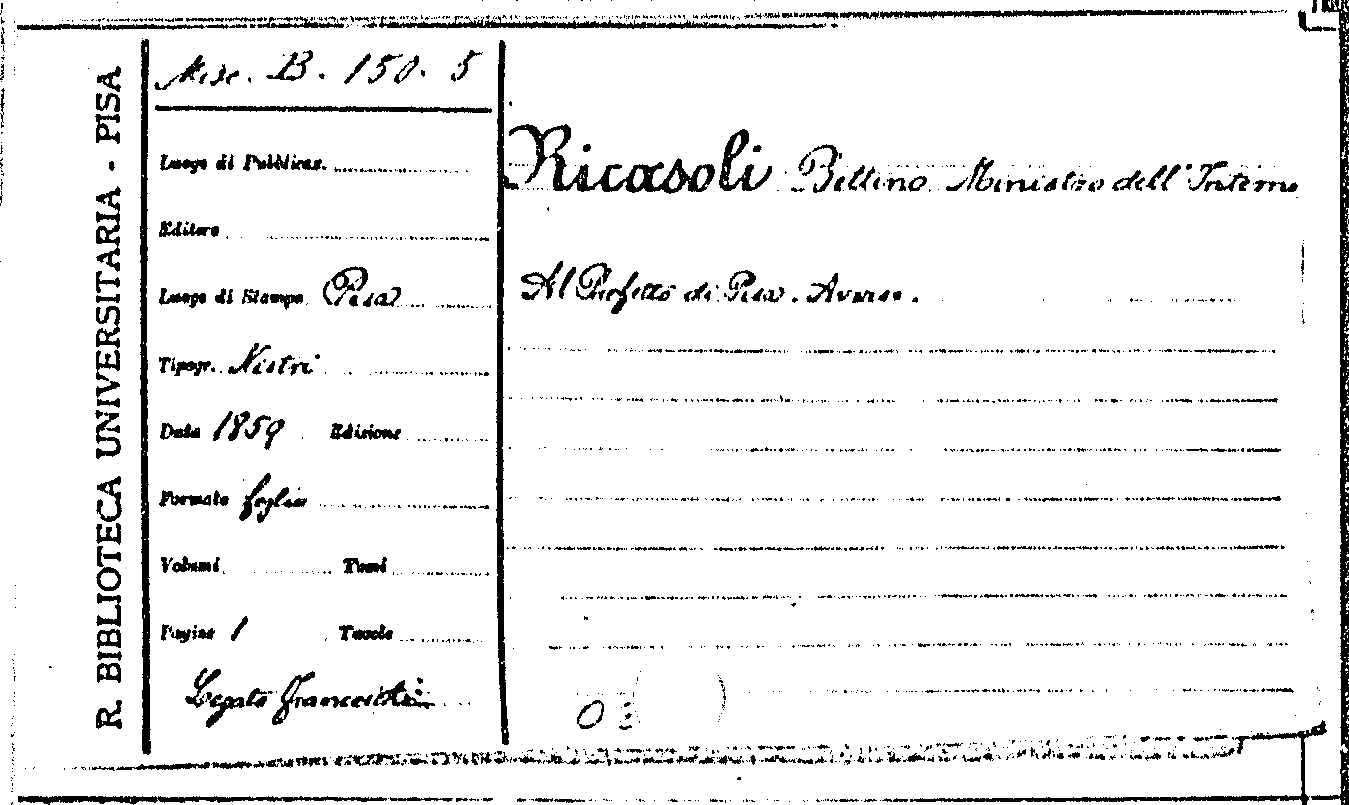 R. BIBLIOTECA UNIVERSITARIA - PISA
Misc. B. 150. 5
Luogo di Pubblicaz.
Editore
Luogo di Stampa Pisa
Tipogr. Nistri
Data 1859 Edizione
Formato foglio
Volumi Tomi
Pagine 1 Tavole
Legato Franceschi
Ricasoli Bettino Ministro dell'Interno
Al Prefetto di Pisa. Avviso.